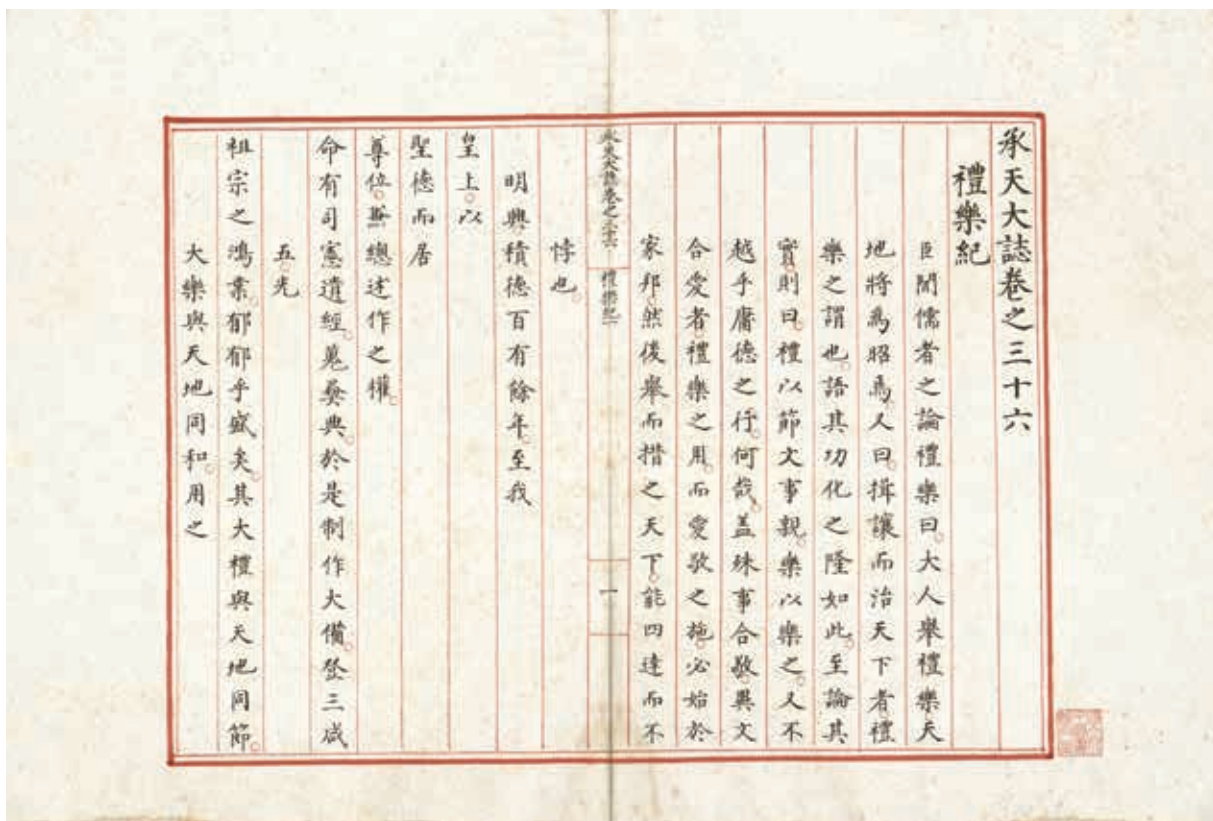 承天大誌卷之三十六
禮樂紀
臣聞儒者之論禮樂曰。大人舉禮樂天
地將為昭焉。人曰。揖讓而治天下者禮
樂之謂也。語其功化之隆如此。至論其
實。則曰。禮以節文事親。樂以樂之。又不
越乎庸德之行。何哉。蓋殊事合敬。異文
合愛者。禮樂之用。而愛敬之施。必始於
家邦。然後舉而措之天下。能四達而不
悖也。
承天大誌卷之三十六 禮樂紀 一
明興積德百有餘年。至我
皇上。以
聖德而居
尊位。兼總述作之權。
命有司憲遺經。蒐彝典。於是制作大備。登三咸
五。光
祖宗之鴻業。郁郁乎盛矣。其大禮與天地同節。
大樂與天地同和。用之